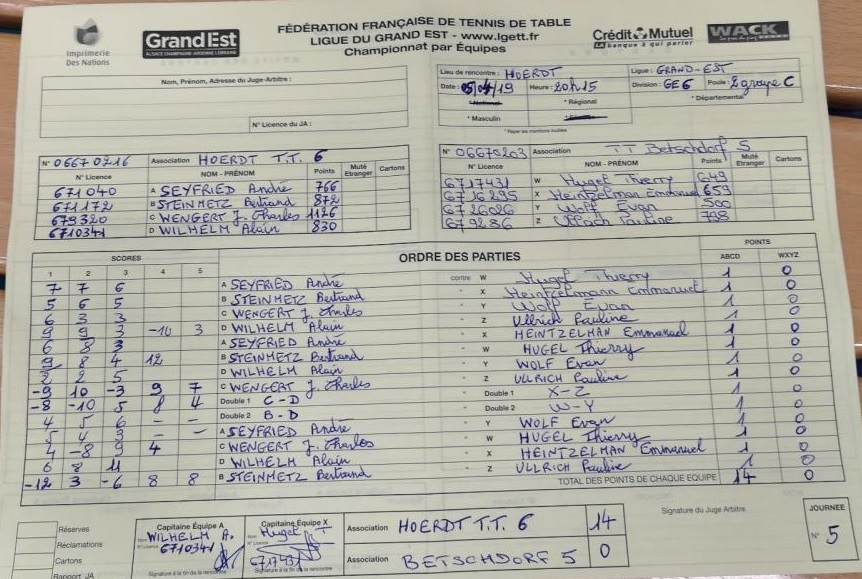 Imprimerie
Des Nations
GrandEst
ALSACE CHAMPAGNE-ARDENNE LORRAINE
FÉDÉRATION FRANÇAISE DE TENNIS DE TABLE
LIGUE DU GRAND EST - www.lgett.fr
Championnat par Équipes
Crédit Mutuel
LA banque à qui parler
WACK
Nom, Prénom, Adresse du Juge-Arbitre :
N° Licence du JA :
Lieu de rencontre : HOERDT Ligue : GRAND-EST
Date : 05/04/19 Heure : 20h15 Division : GE6 Poule : 2 groupe C
* National * Régional * Départemental
* Masculin
* Rayer les mentions inutiles
N° 06670216 Association HOERDT T.T. 6
N° Licence NOM - PRÉNOM Points Muté Etranger Cartons
671040 A SEYFRIED André 766
671172 B STEINMETZ Bertrand 872
679320 C WENGERT J. Charles 1126
6710341 D WILHELM Alain 830
N° 06670203 Association TT Betschdorf 5
N° Licence NOM - PRÉNOM Points Muté Etranger Cartons
6717431 W Hugel Thierry 649
6716295 X Heintzelman Emmanuel 659
6726026 Y Wolf Evan 500
679286 Z Ullrich Pauline 798
SCORES ORDRE DES PARTIES POINTS
1 2 3 4 5 ABCD WXYZ
7 7 6 A SEYFRIED André contre W Hugel Thierry 1 0
5 6 5 B STEINMETZ Bertrand " X Heintzelmann Emmanuel 1 0
6 3 3 C WENGERT J. Charles " Y Wolf Evan 1 0
9 9 3 -10 3 D WILHELM Alain " Z Ullrich Pauline 1 0
6 8 3 A SEYFRIED André " X HEINTZELMAN Emmanuel 1 0
9 8 4 12 B STEINMETZ Bertrand " W HUGEL Thierry 1 0
2 2 5 D WILHELM Alain " Y WOLF Evan 1 0
-9 10 -3 9 7 C WENGERT J. Charles " Z ULLRICH Pauline 1 0
-8 -10 5 8 4 Double 1 C - D " Double 1 X-Z 1 0
4 5 6 - - Double 2 B - D " Double 2 W-Y 1 0
5 4 3 - - A SEYFRIED André " Y WOLF Evan 1 0
4 -8 9 4 C WENGERT J. Charles " W HUGEL Thierry 1 0
6 8 11 D WILHELM Alain " X HEINTZELMAN Emmanuel 1 0
-12 3 -6 8 8 B STEINMETZ Bertrand " Z ULLRICH Pauline 1 0
TOTAL DES POINTS DE CHAQUE ÉQUIPE 14 0
Réserves
Réclamations
Cartons
Rapport JA
Capitaine Équipe A
Nom WILHELM A.
N° Licence 6710341
Signature à la fin de la rencontre
Capitaine Équipe X
Hugel T
N° Licence
6717431
Signature à la fin de la rencontre
Association HOERDT T.T. 6 14
Association BETSCHDORF 5 0
Signature du Juge Arbitre
JOURNEE
N° 5